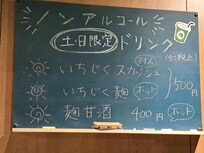 ノンアルコール
土・日限定 ドリンク
(全て税込)
アイス
いちじくスカッシュ
いちじく麹 ホット
500円
麹甘酒 400円 ホット